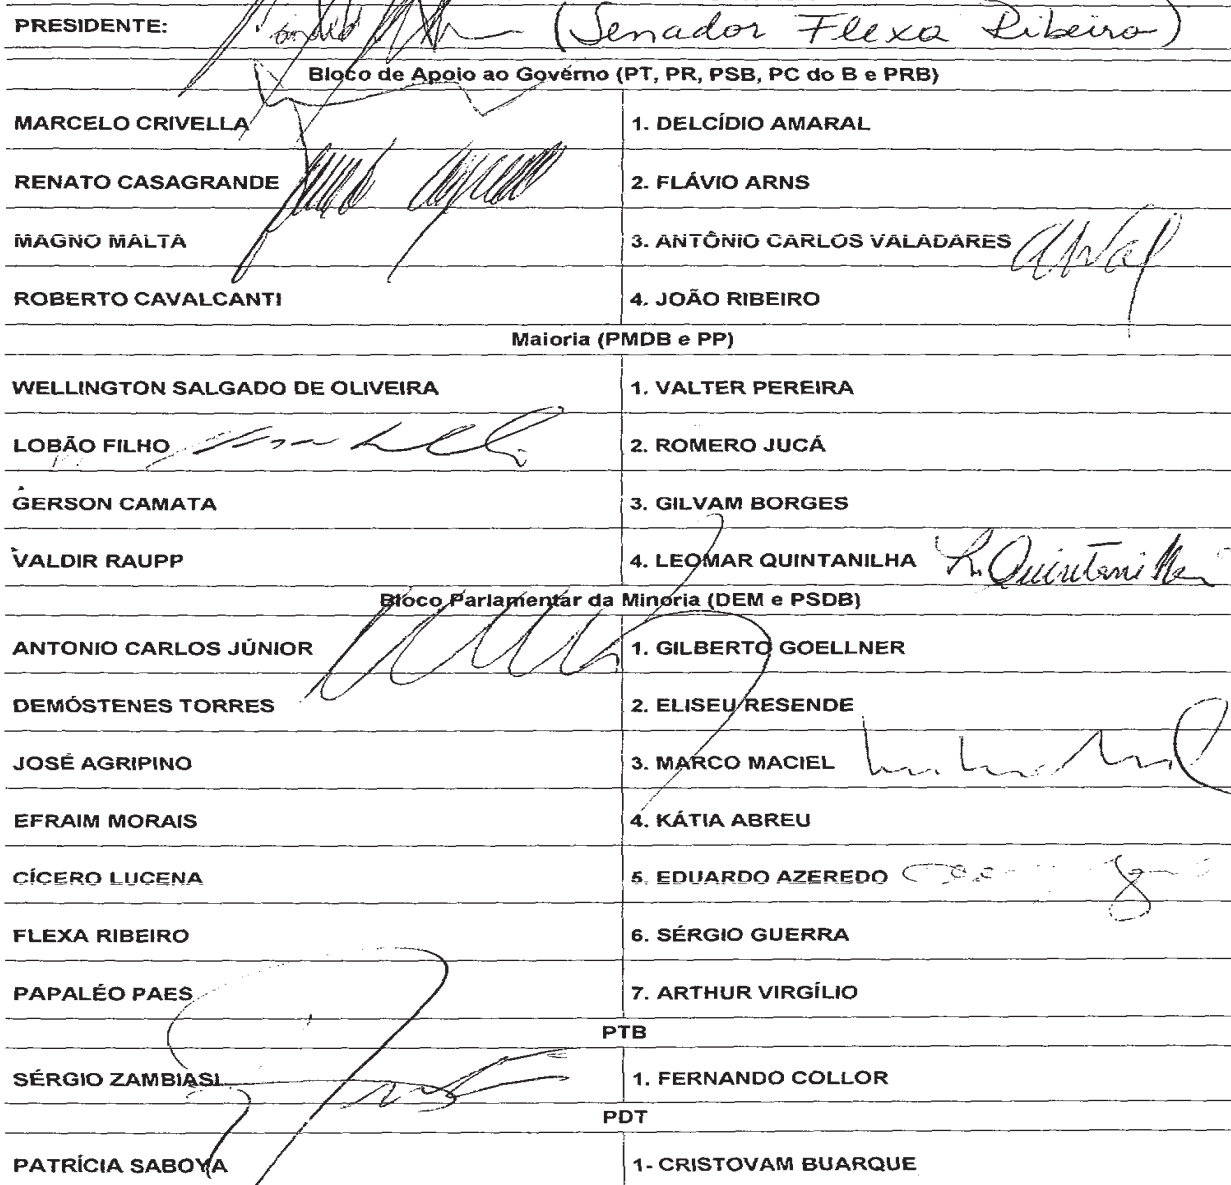 PRESIDENTE: (Senador Flexa Ribeiro)
Bloco de Apoio ao Governo (PT, PR, PSB, PC do B e PRB)
MARCELO CRIVELLA 1. DELCÍDIO AMARAL
RENATO CASAGRANDE 2. FLÁVIO ARNS
MAGNO MALTA 3. ANTÔNIO CARLOS VALADARES
ROBERTO CAVALCANTI 4. JOÃO RIBEIRO
Maioria (PMDB e PP)
WELLINGTON SALGADO DE OLIVEIRA 1. VALTER PEREIRA
LOBÃO FILHO 2. ROMERO JUCÁ
GERSON CAMATA 3. GILVAM BORGES
VALDIR RAUPP 4. LEOMAR QUINTANILHA L. Quintanilha
Bloco Parlamentar da Minoria (DEM e PSDB)
ANTONIO CARLOS JÚNIOR 1. GILBERTO GOELLNER
DEMÓSTENES TORRES 2. ELISEU RESENDE
JOSÉ AGRIPINO 3. MARCO MACIEL
EFRAIM MORAIS 4. KÁTIA ABREU
CÍCERO LUCENA 5. EDUARDO AZEREDO
FLEXA RIBEIRO 6. SÉRGIO GUERRA
PAPALÉO PAES 7. ARTHUR VIRGÍLIO
PTB
SÉRGIO ZAMBIASI 1. FERNANDO COLLOR
PDT
PATRÍCIA SABOYA 1- CRISTOVAM BUARQUE